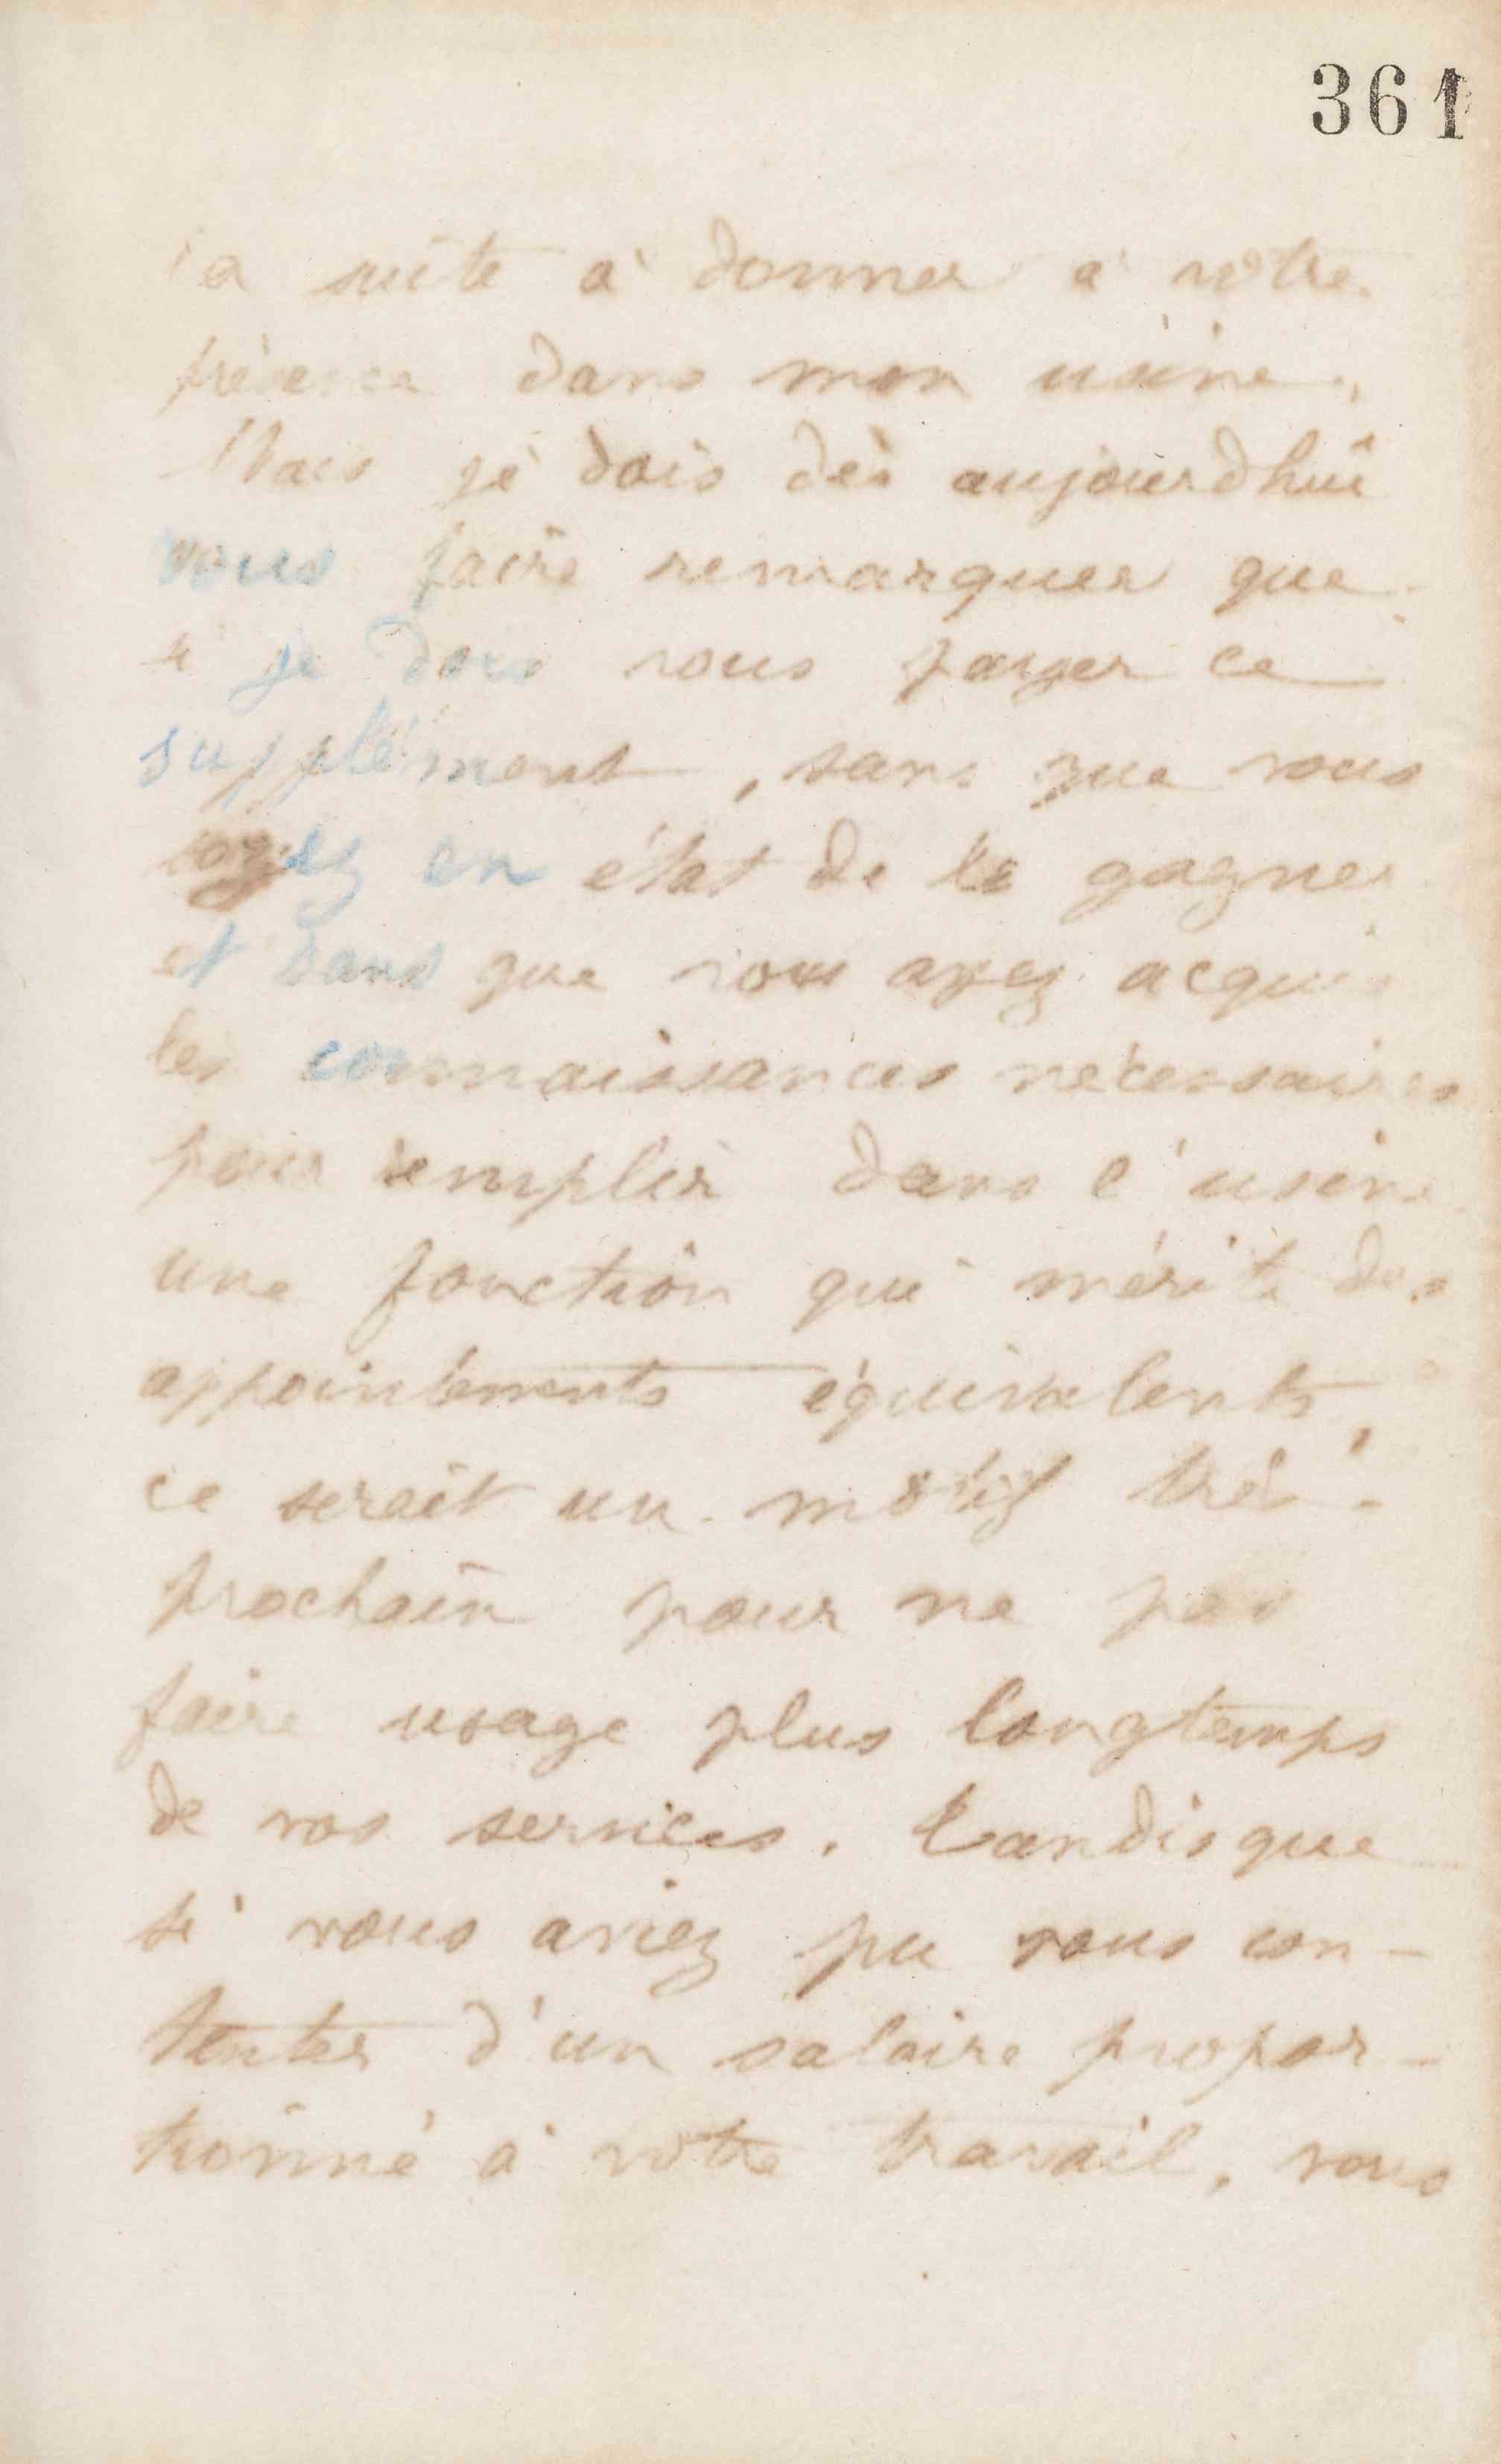 361
la suite à donner à votre
présence dans mon usine.
Mais je dois dès aujourdhui
vous faire remarquer que
si je dois vous payer ce
supplément, sans que vous
soyez en état de le gagner
et sans que vous ayez acquis
les connaissances nécessaires
pour remplir dans l'usine
une fonction qui mérite des
appointements équivalents,
ce serait un motif très
prochain pour ne pas
faire usage plus longtemps
de vos services. tandisque
si vous aviez pu vous con-
tenter d'un salaire propor-
tionné à votre travail, vous